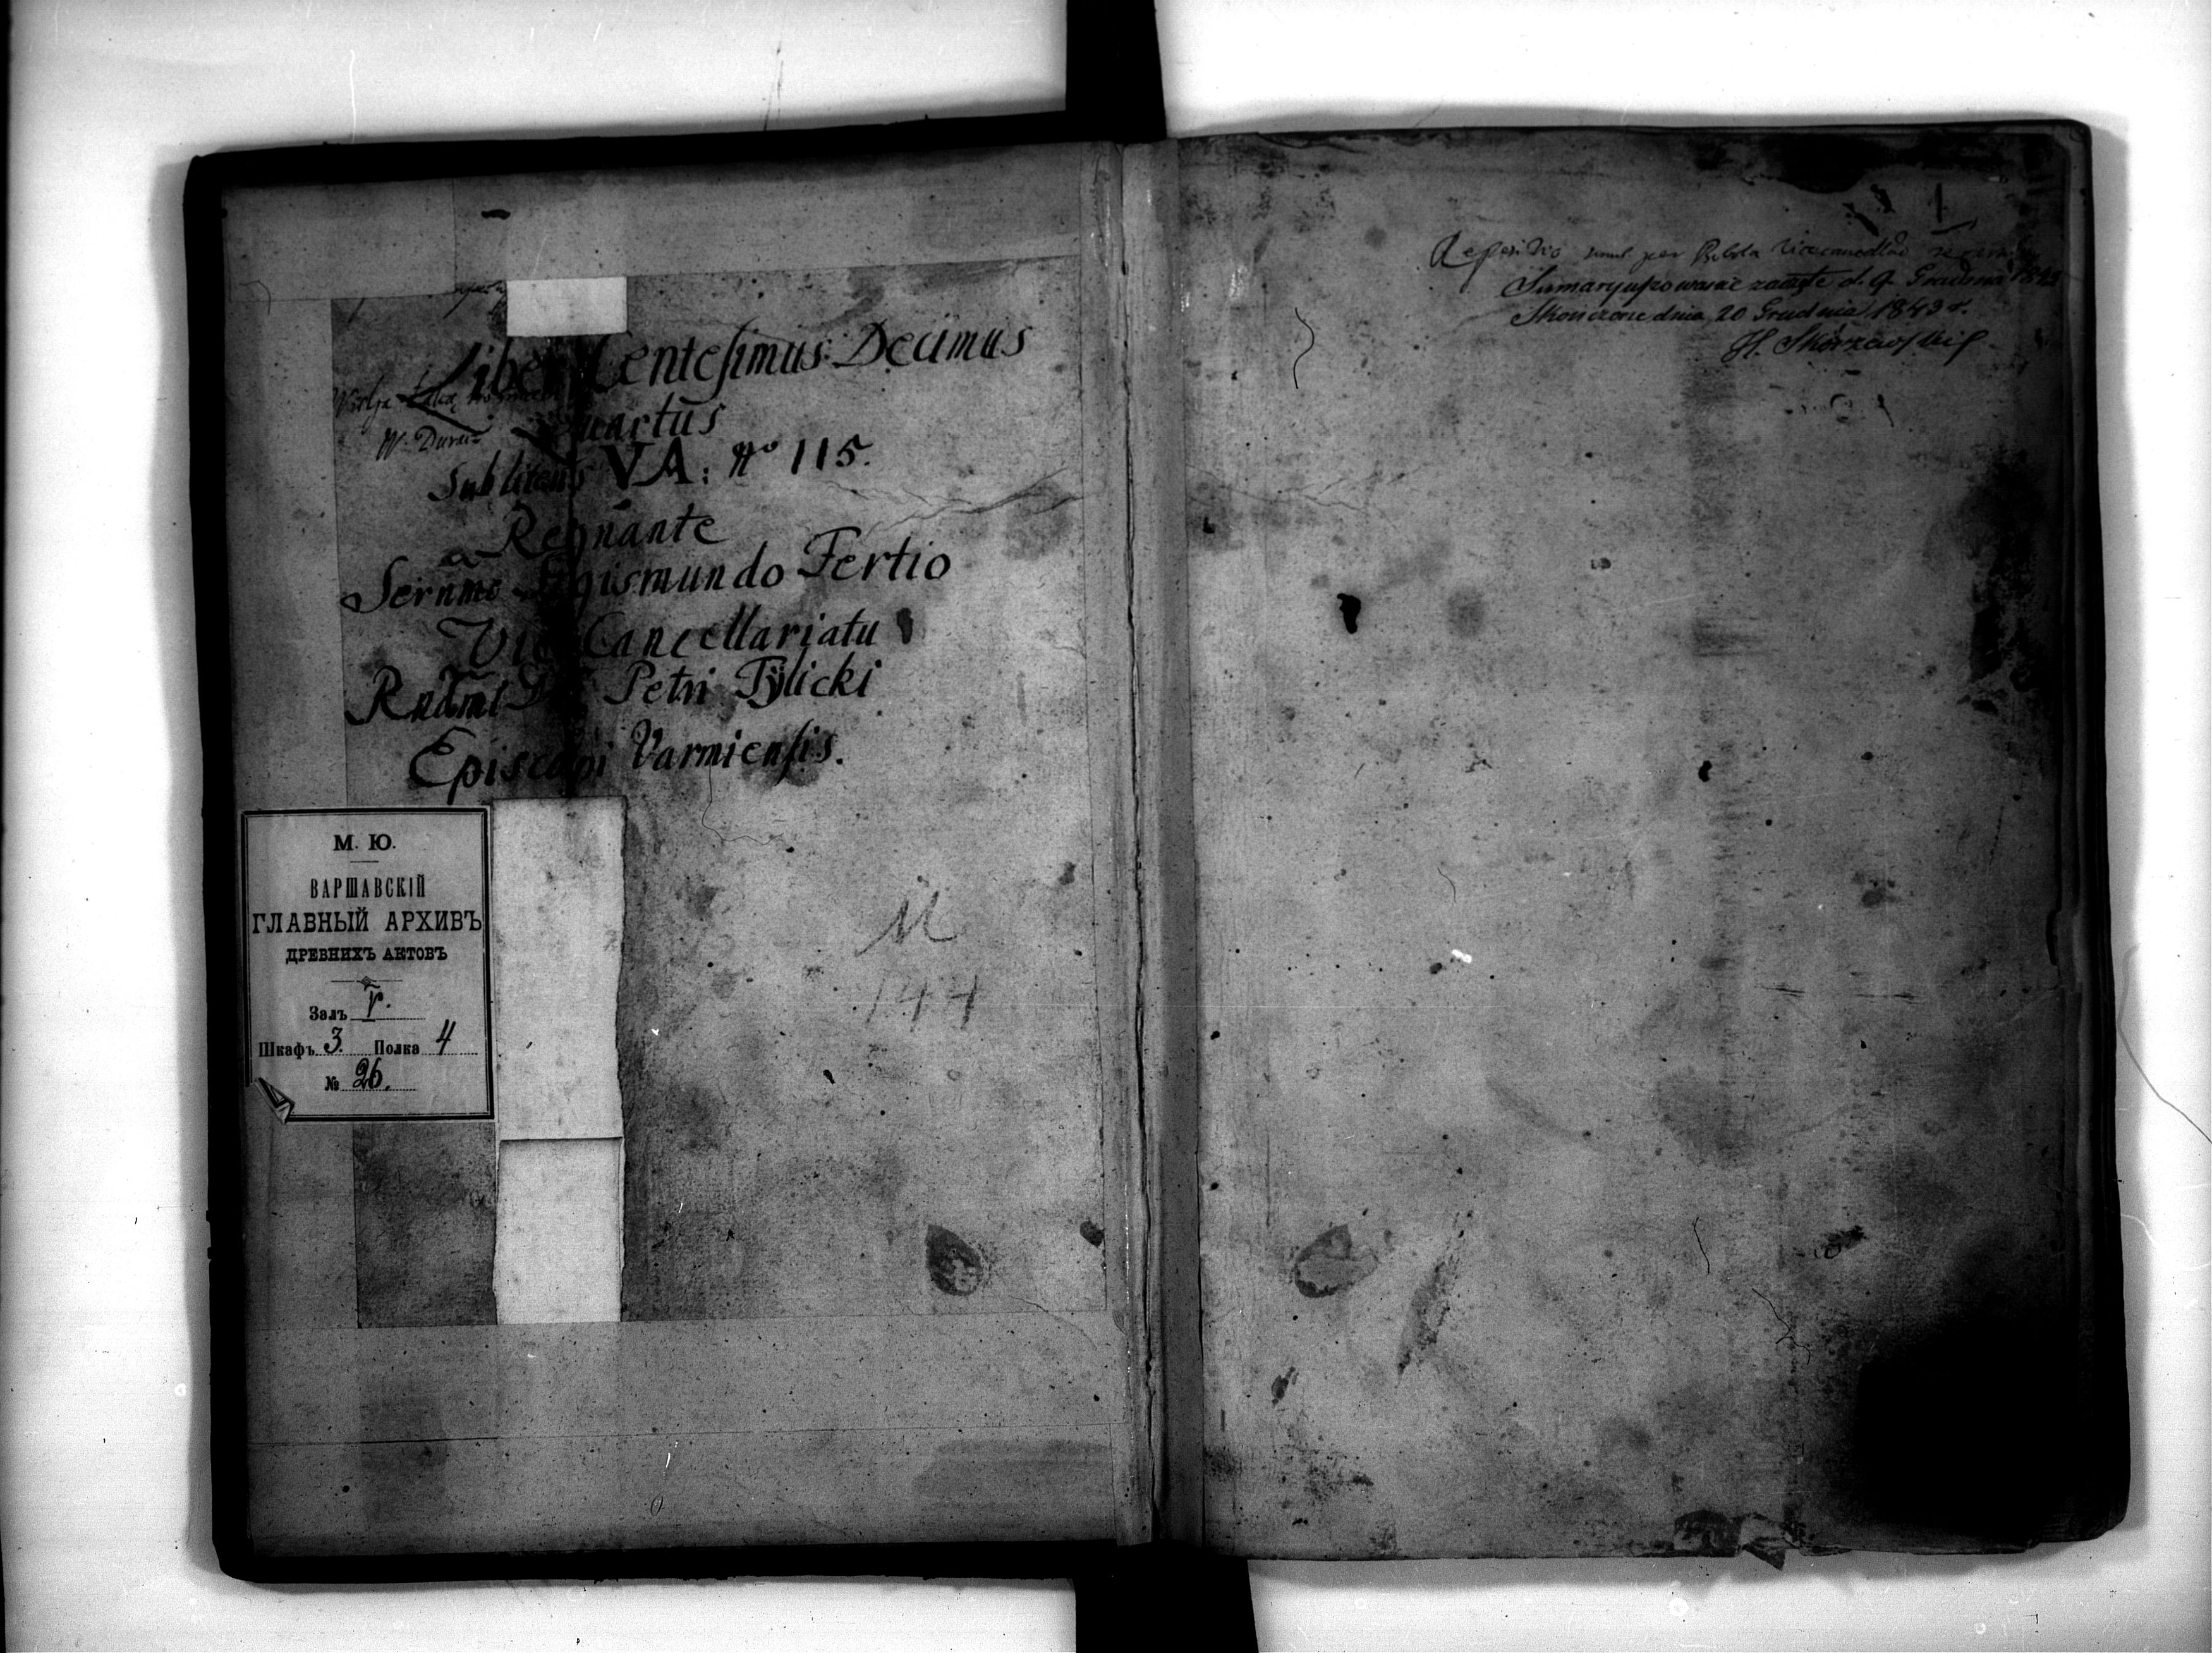 Liber Centesimus Decimus
Quartus
Sub literis VA: No 115.
Regnante
Sernmo Sigismundo Tertio
Vice Cancellariatu
Rndmi Petri Tylicki
Episcopi Varmiensis.
М. Ю.
ВАРШАВСКІЙ
ГЛАВНЫЙ АРХИВЪ
ДРЕВНИХЪ АКТОВЪ
Залъ I.
Шкафъ 3. Полка 4
№ 26.
M
144
1
per
Sumaryuszowanie zaczęte d. 9 Grudnia
Skończone dnia 20 Grudnia 1843 r.
H. Skorzewski